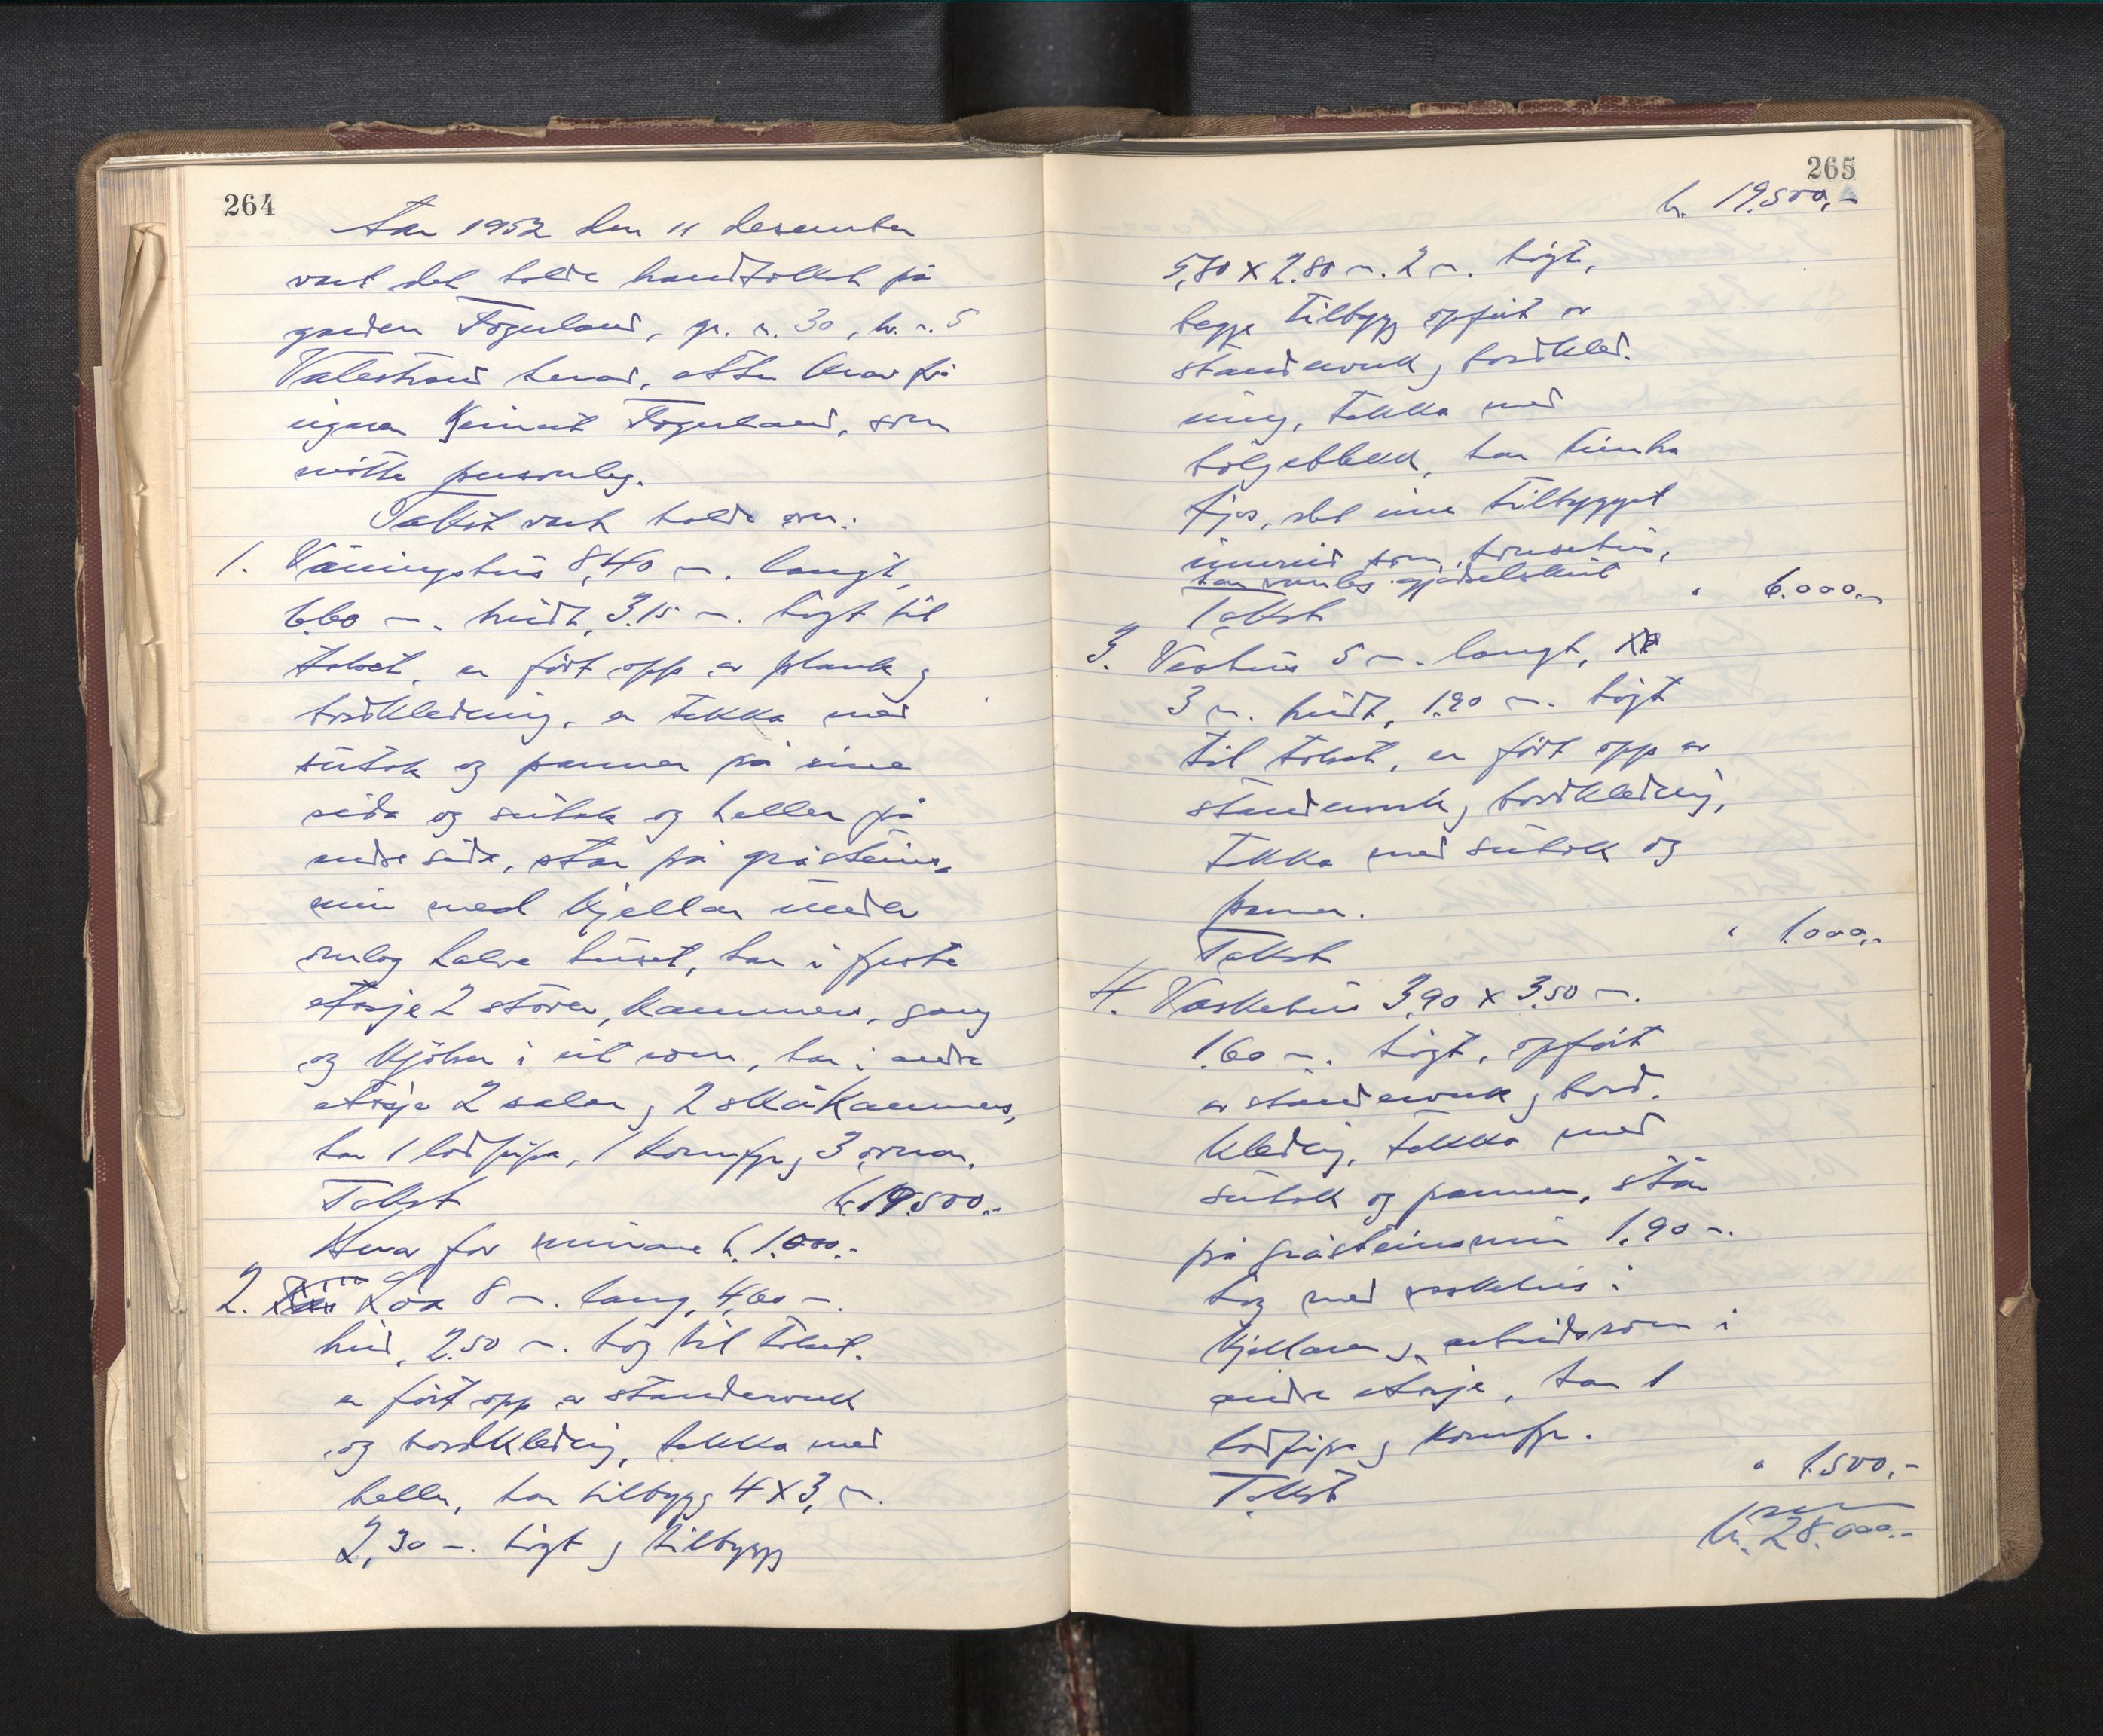 264
Aar 1952 den 11 desember
vart det halde brandtakst på
garden Fogerland, gr. n. 30, br. n. 5
Valestrand herad, etter krav frå
eigaren Reinert Fogerland, som
møtte personleg.
Takst vart halde over:
1. Våningshus 8,40 m. langt,
6.60 m. breidt, 3.15 m. högt til
taket, er fört opp av plank og
bordkledning, er tekka med
sutak og panner på eine
sida og sutak og heller på
andre sida, står på gråsteins-
mur med kjellar under
umlag halve huset, har i fyrste
etasje 2 stover, kammer, gang
og kjöken i eit rom, har i andre
etasje 2 salar og 2 skåkammers,
har 1 lodpipa, 1 komfyr og 3 omnar.
Takst kr. 19.500.-
Herav for murane kr. 1.000.-
2. Löa 8 m. lang, 4,60 m.
breid, 2.50 m. høg til taket.
er fört opp av standerverk
og bordkledning, tekka med
heller, har tilbygg 4 x 3, m.
2,30 m. högt og tilbygg
265
kr. 19.500,-
5,80 x 2.80 m. 2 m. högt,
begge tilbygg opfört av
standerverk og bordkled-
ning, tekka med
bölgeblekk, har innha
fjos, det eine tilbygget
innreid som hönsehus,
har vanleg gjödselskut
Takst " 6.000.-
3. Vedhus 5 m. langt,
3 m. breidt, 1.90 m. högt
til taket, er fört opp av
standerverk og bordkledning,
tekka med sutak og
panner.
Takst " 1.000,-
4. Vaskehus 3,90 x 3.50 m.
1.60 m. högt, opfört
av standerverk og bord-
kledning, tekka med
sutak og panner, står
på gråsteinsmur 1,90 m.
høg med vaskehus i
kjellaren og arbeidsrom i
andre etasje, har 1
lodpipa og komfyr.
Takst " 1.500,-
kr. 28.000.-